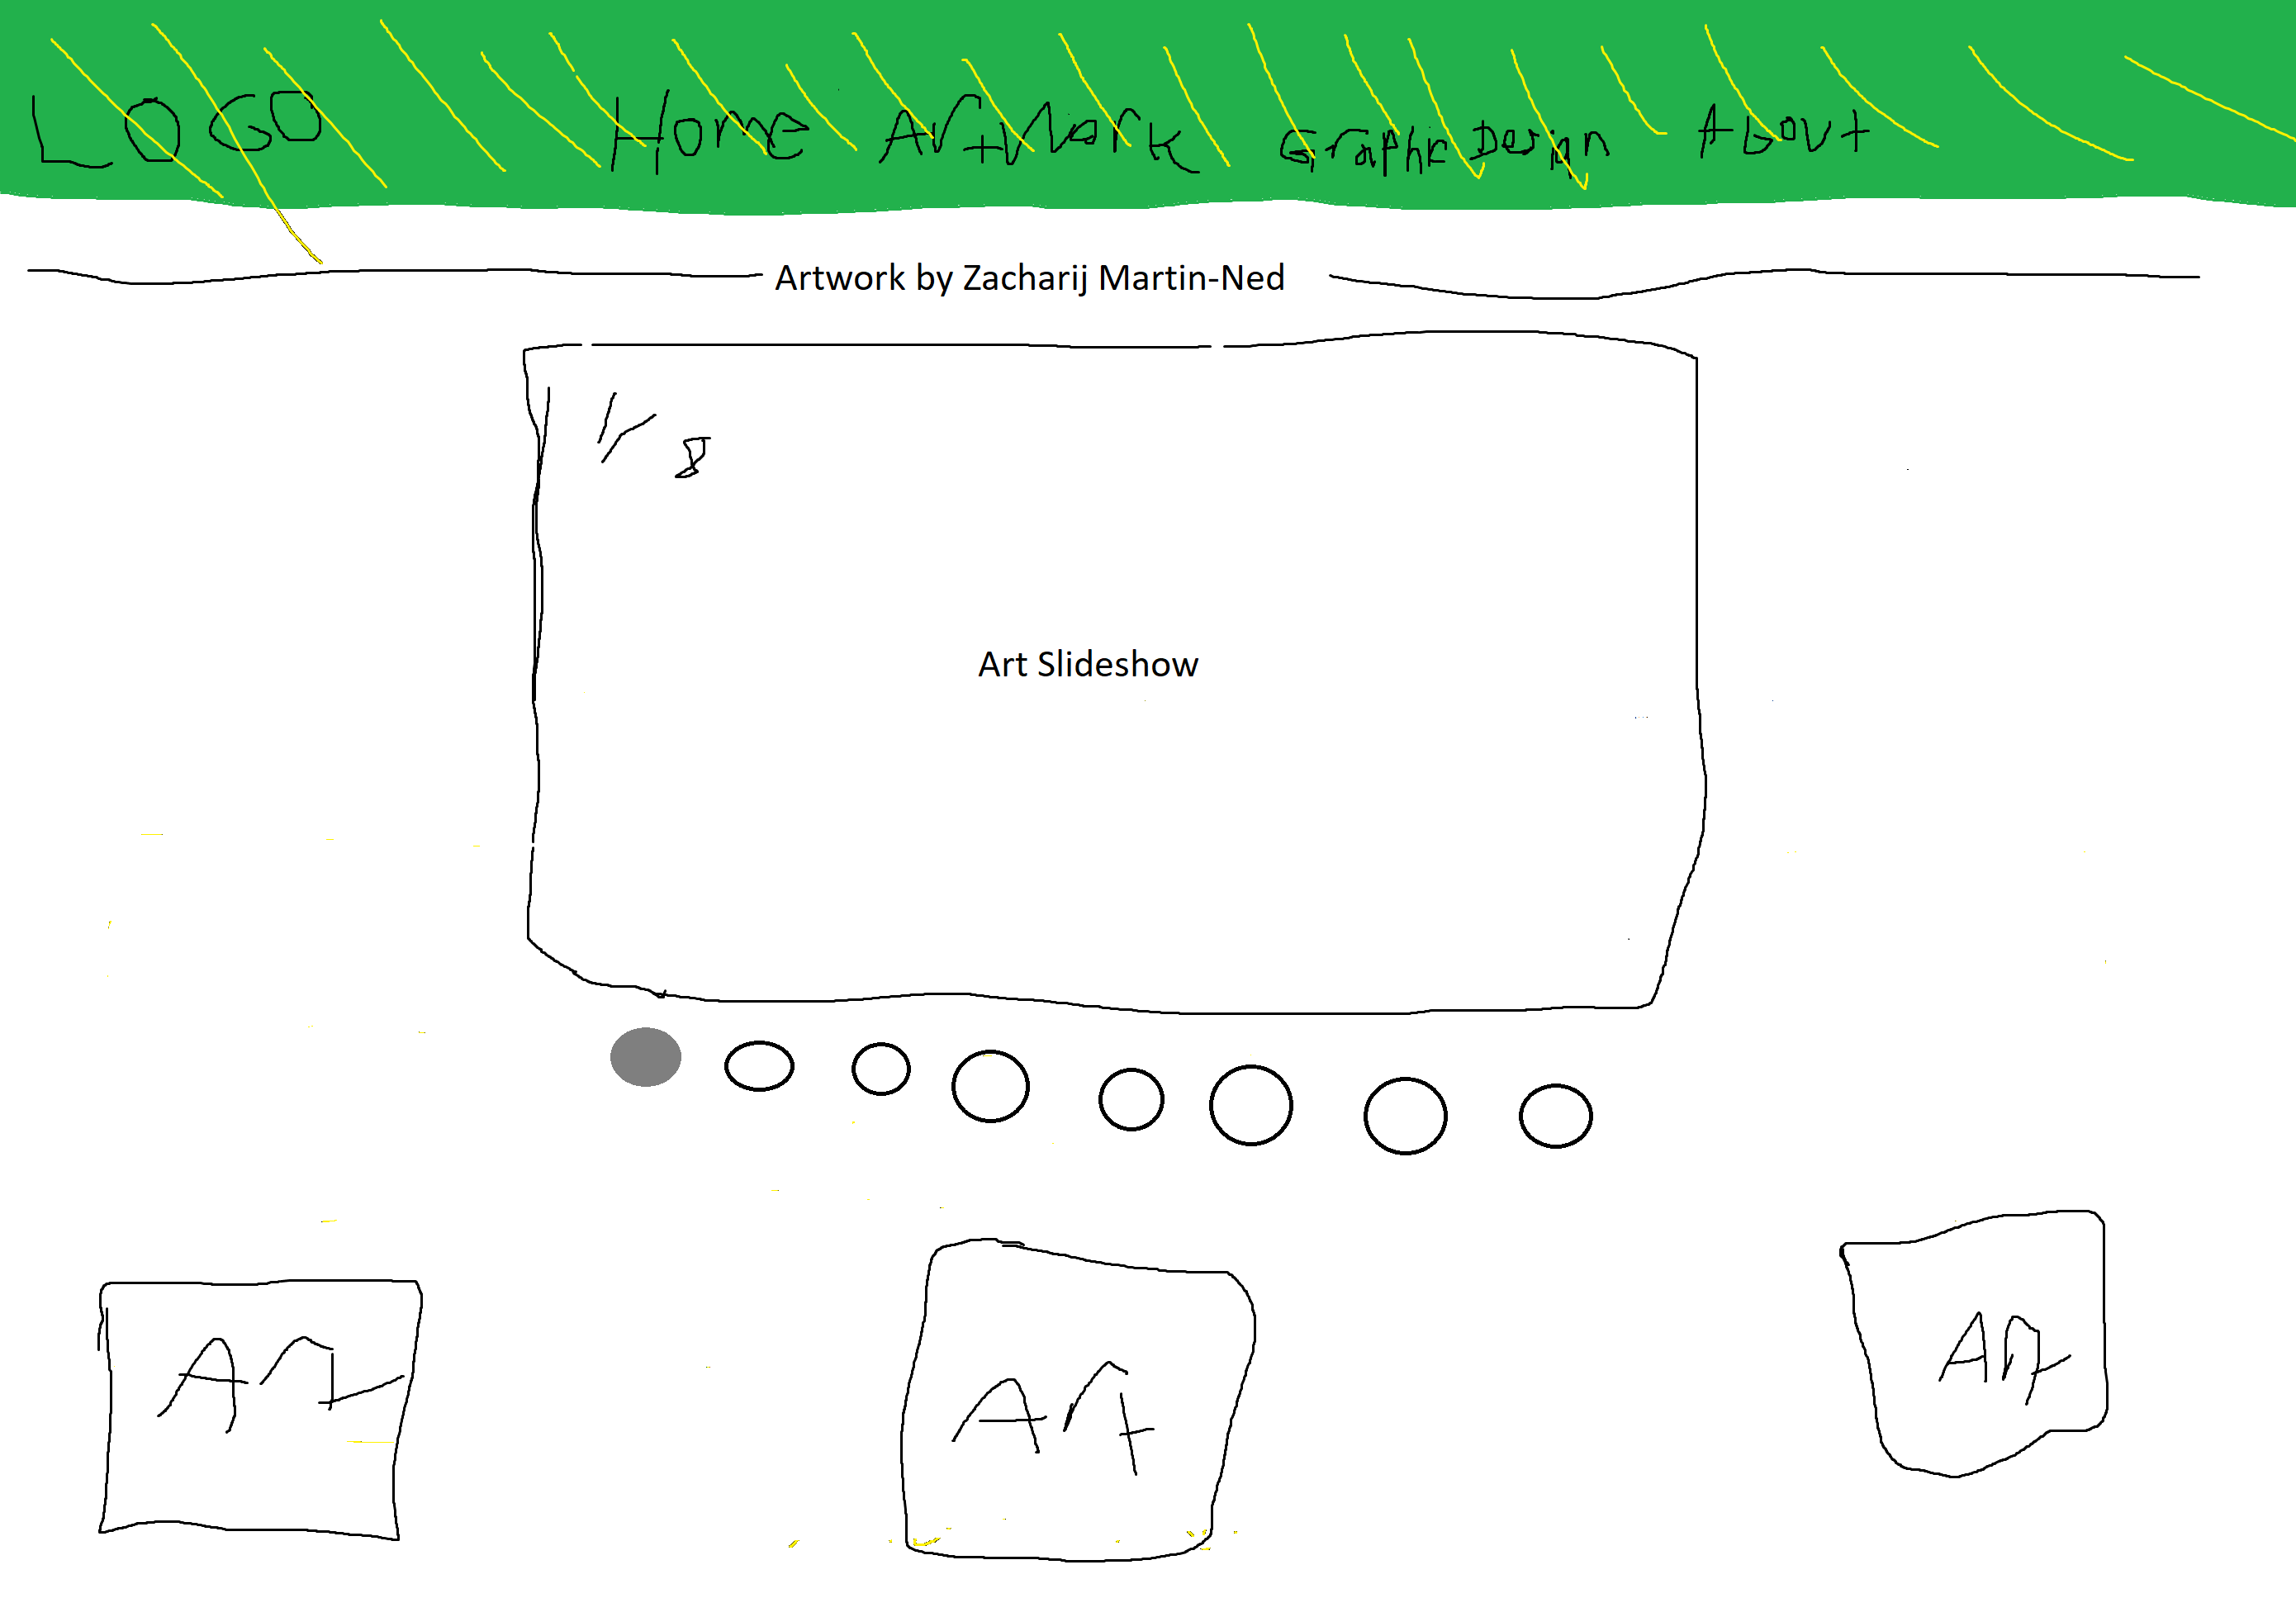 LOGO Home Artwork Graphic Design About
Artwork by Zacharij Martin-Ned
1/8
Art Slideshow
Art Art Art